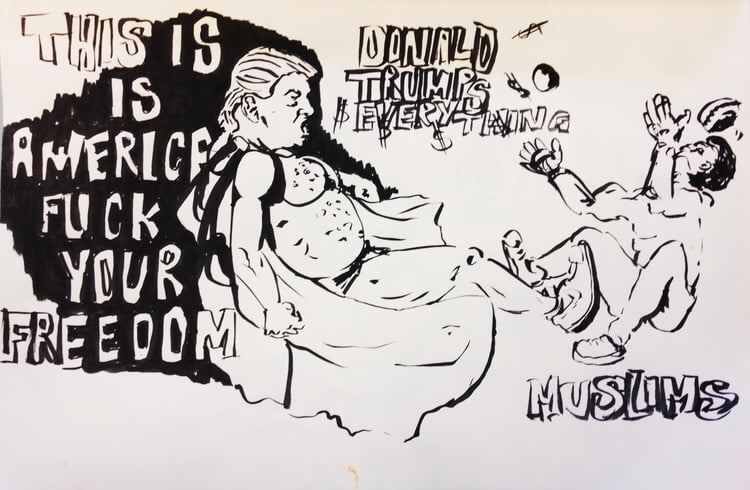 THIS IS
IS
AMERICA
FUCK
YOUR
FREEDOM
DONALD
TRUMPS
EVERYTHING
MUSLIMS